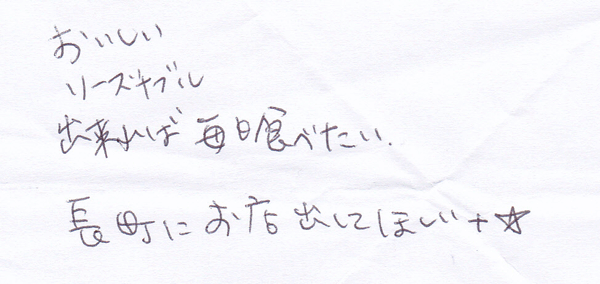 おいしい
リーズナブル
出来れば 毎日食べたい.
長町にお店出してほしい+☆